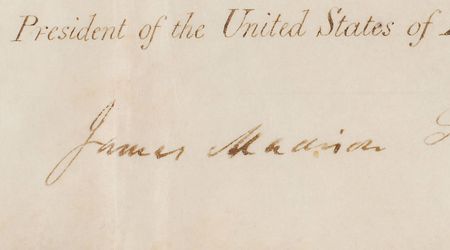 President of the United States of
James Madison